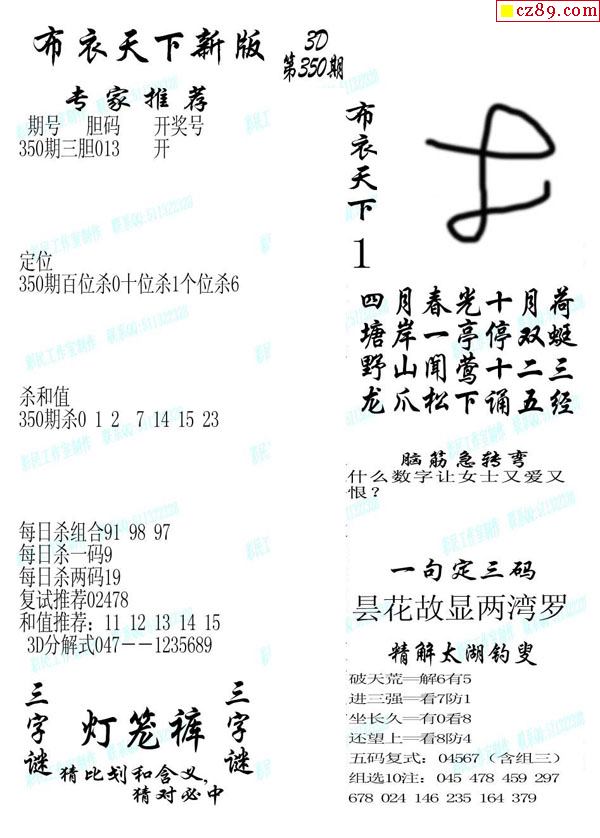 cz89.com
布衣天下新版
3D
第350期
专家推荐
期号 胆码 开奖号
350期三胆013 开
定位
350期百位杀0十位杀1个位杀6
杀和值
350期杀0 1 2 7 14 15 23
每日杀组合91 98 97
每日杀一码9
每日杀两码19
复试推荐02478
和值推荐：11 12 13 14 15
3D分解式047--1235689
三字谜
灯笼裤
三字谜
猜比划和含义，
猜对必中
布衣天下
1
四月春光十月荷
塘岸一亭停双蜓
野山闻莺十二三
龙爪松下诵五经
脑筋急转弯
什么数字让女士又爱又
恨？
一句定三码
昙花故显两湾罗
精解太湖钓叟
破天荒—解6有5
进三强—看7防1
坐长久—有0看8
还望上—看8防4
五码复式：04567（含组三）
组选10注：045 478 459 297
678 024 146 235 164 379
彩民工作室制作 联系QQ:511322320